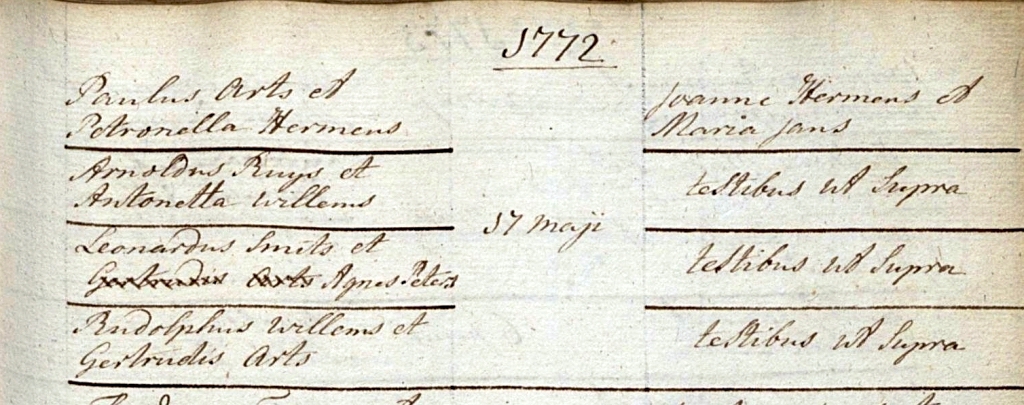 1772
Paulus Arts et
Petronella Hermens
Joanne Hermens et
Maria Jans
Arnoldus Ruys et
Antonetta Willems
testibus ut Supra
17 maji
Leonardus Smits et
Gertrudis Arts Agnes Peters
testibus ut Supra
Rudolphus Willems et
Gertrudis Arts
testibus ut Supra